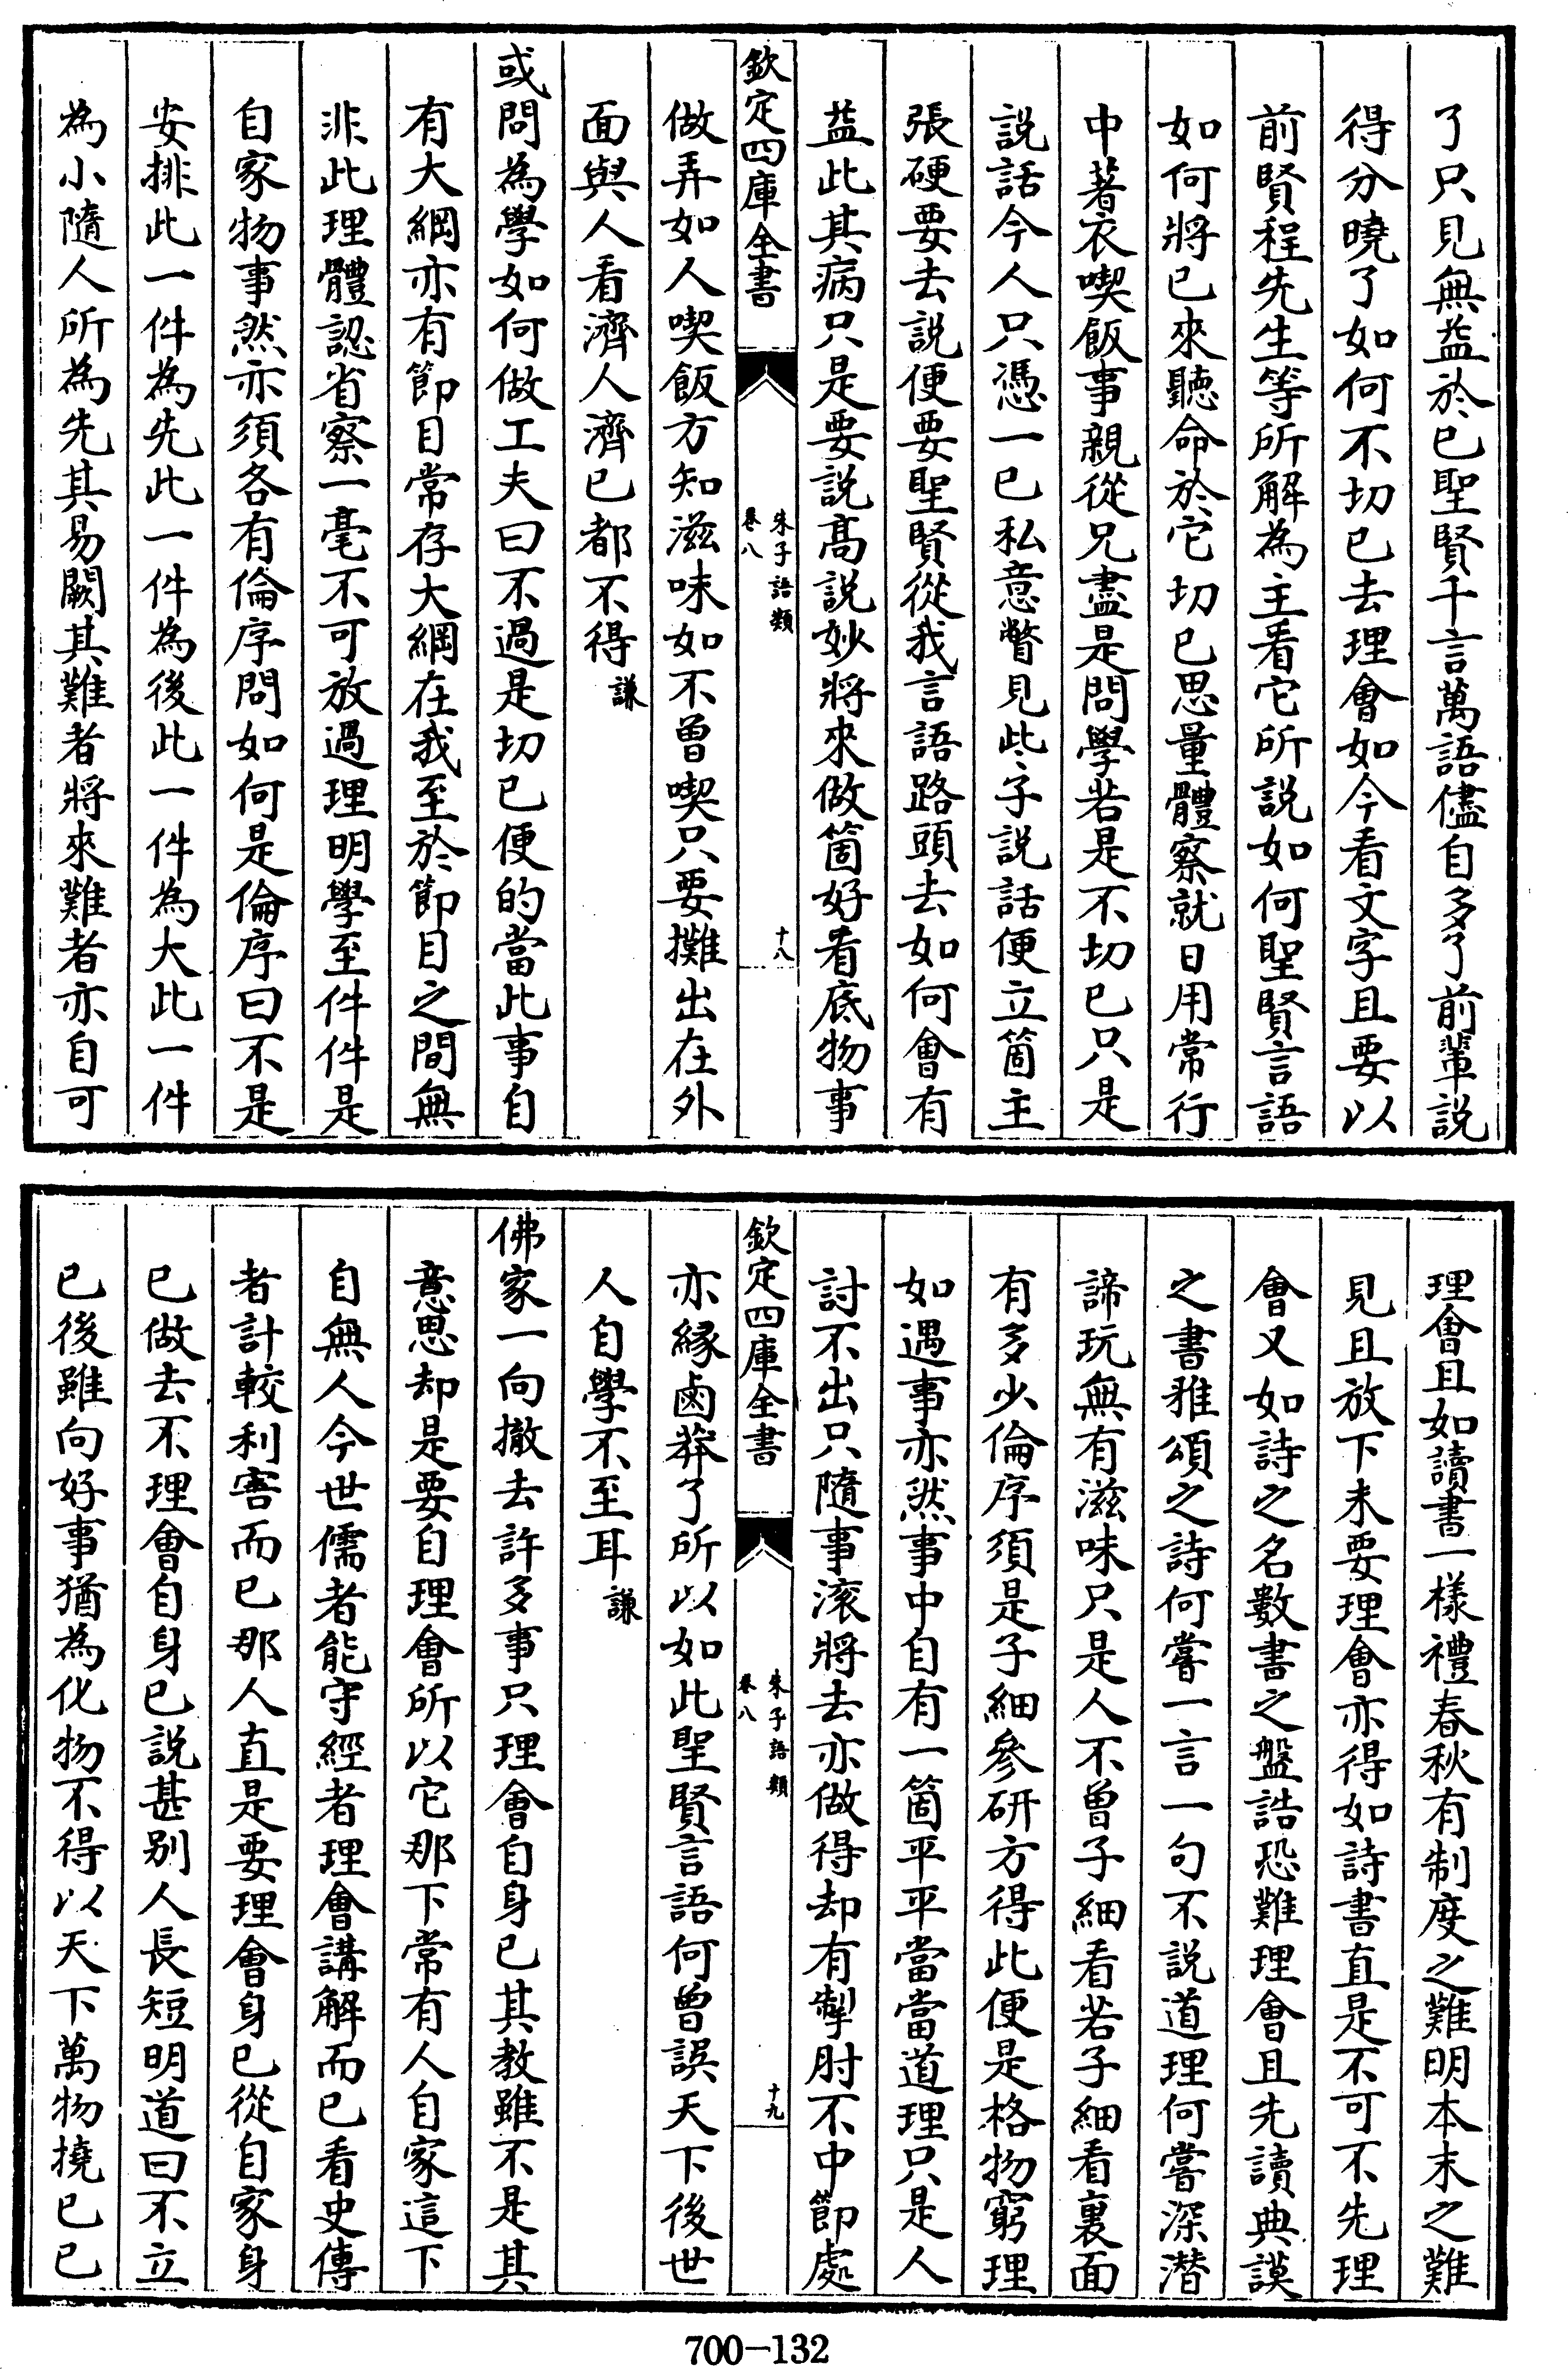 了只見無益於已聖賢千言萬語儘自多了前輩説
得分曉了如何不切已去理會如今看文字且要以
前賢程先生等所解為主看它所説如何聖賢言語
如何將已來聽命於它切已思量體察就日用常行
中著衣喫飯事親從兄盡是問學若是不切已只是
説話今人只憑一已私意瞥見些子説話便立箇主
張硬要去説便要聖賢從我言語路頭去如何會有
益此其病只是要説髙説妙將來做箇好看底物事
欽定四庫全書
朱子語類
卷八
十八
做弄如人喫飯方知滋味如不曾喫只要攤出在外
面與人看濟人濟已都不得謙
或問為學如何做工夫曰不過是切已便的當此事自
有大綱亦有節目常存大綱在我至於節目之間無
非此理體認省察一毫不可放過理明學至件件是
自家物事然亦須各有倫序問如何是倫序曰不是
安排此一件為先此一件為後此一件為大此一件
為小隨人所為先其易闕其難者將來難者亦自可
理會且如讀書一樣禮春秋有制度之難明本末之難
見且放下未要理會亦得如詩書直是不可不先理
會又如詩之名數書之盤誥恐難理會且先讀典謨
之書雅頌之詩何嘗一言一句不説道理何嘗深潛
諦玩無有滋味只是人不曾子細看若子細看裏面
有多少倫序須是子細參研方得此便是格物窮理
如遇事亦然事中自有一箇平平當當道理只是人
討不出只隨事滚將去亦做得却有掣肘不中節處
欽定四庫全書
朱子語類
卷八
十九
亦緣鹵莽了所以如此聖賢言語何曾誤天下後世
人自學不至耳謙
佛家一向撤去許多事只理會自身已其教雖不是其
意思却是要自理會所以它那下常有人自家這下
自無人今世儒者能守經者理會講解而已看史傳
者計較利害而已那人直是要理會身已從自家身
已做去不理會自身已説甚别人長短明道曰不立
已後雖向好事猶為化物不得以天下萬物撓已已
700-132